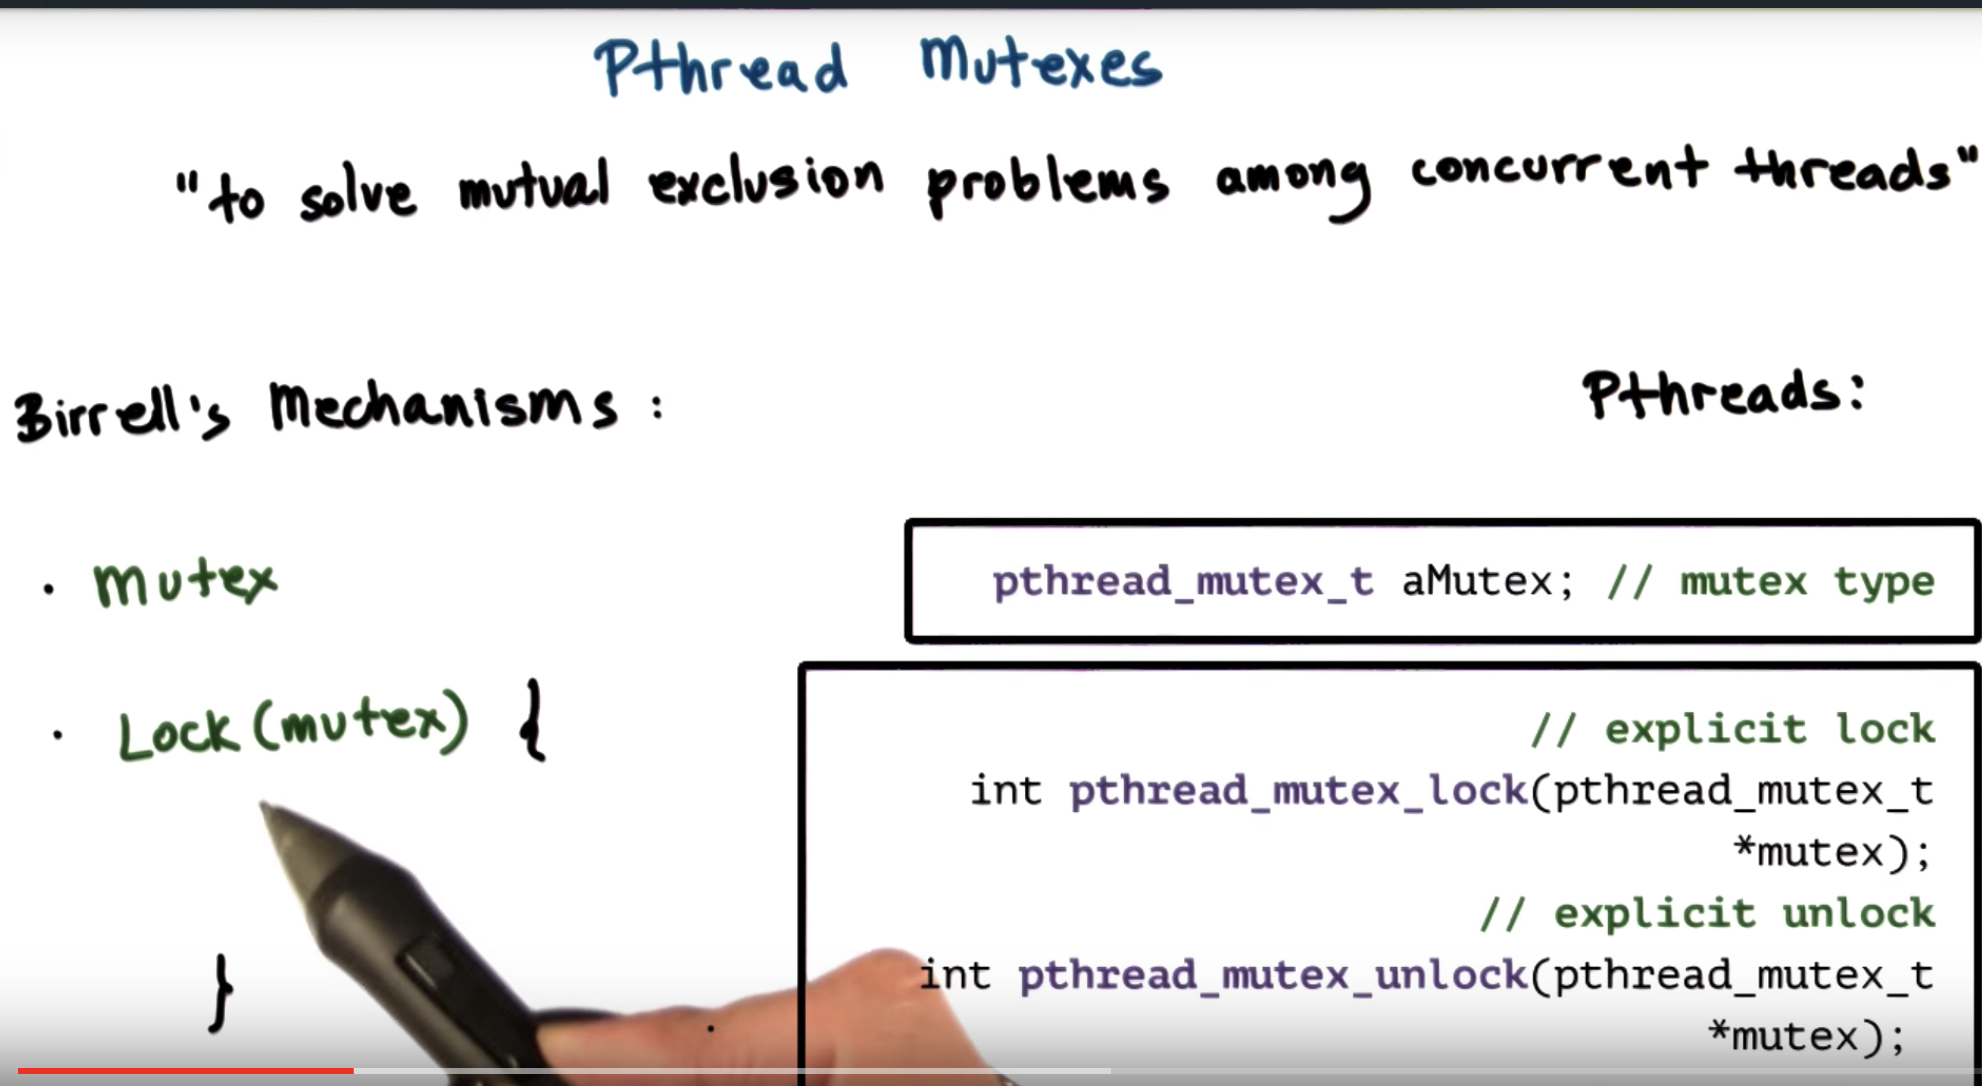 Pthread Mutexes
"to solve mutual exclusion problems among concurrent threads"
Birrell's Mechanisms :
Pthreads:
· mutex
pthread_mutex_t aMutex; // mutex type
· Lock (mutex) {
}
// explicit lock
int pthread_mutex_lock(pthread_mutex_t
*mutex);
// explicit unlock
int pthread_mutex_unlock(pthread_mutex_t
*mutex);